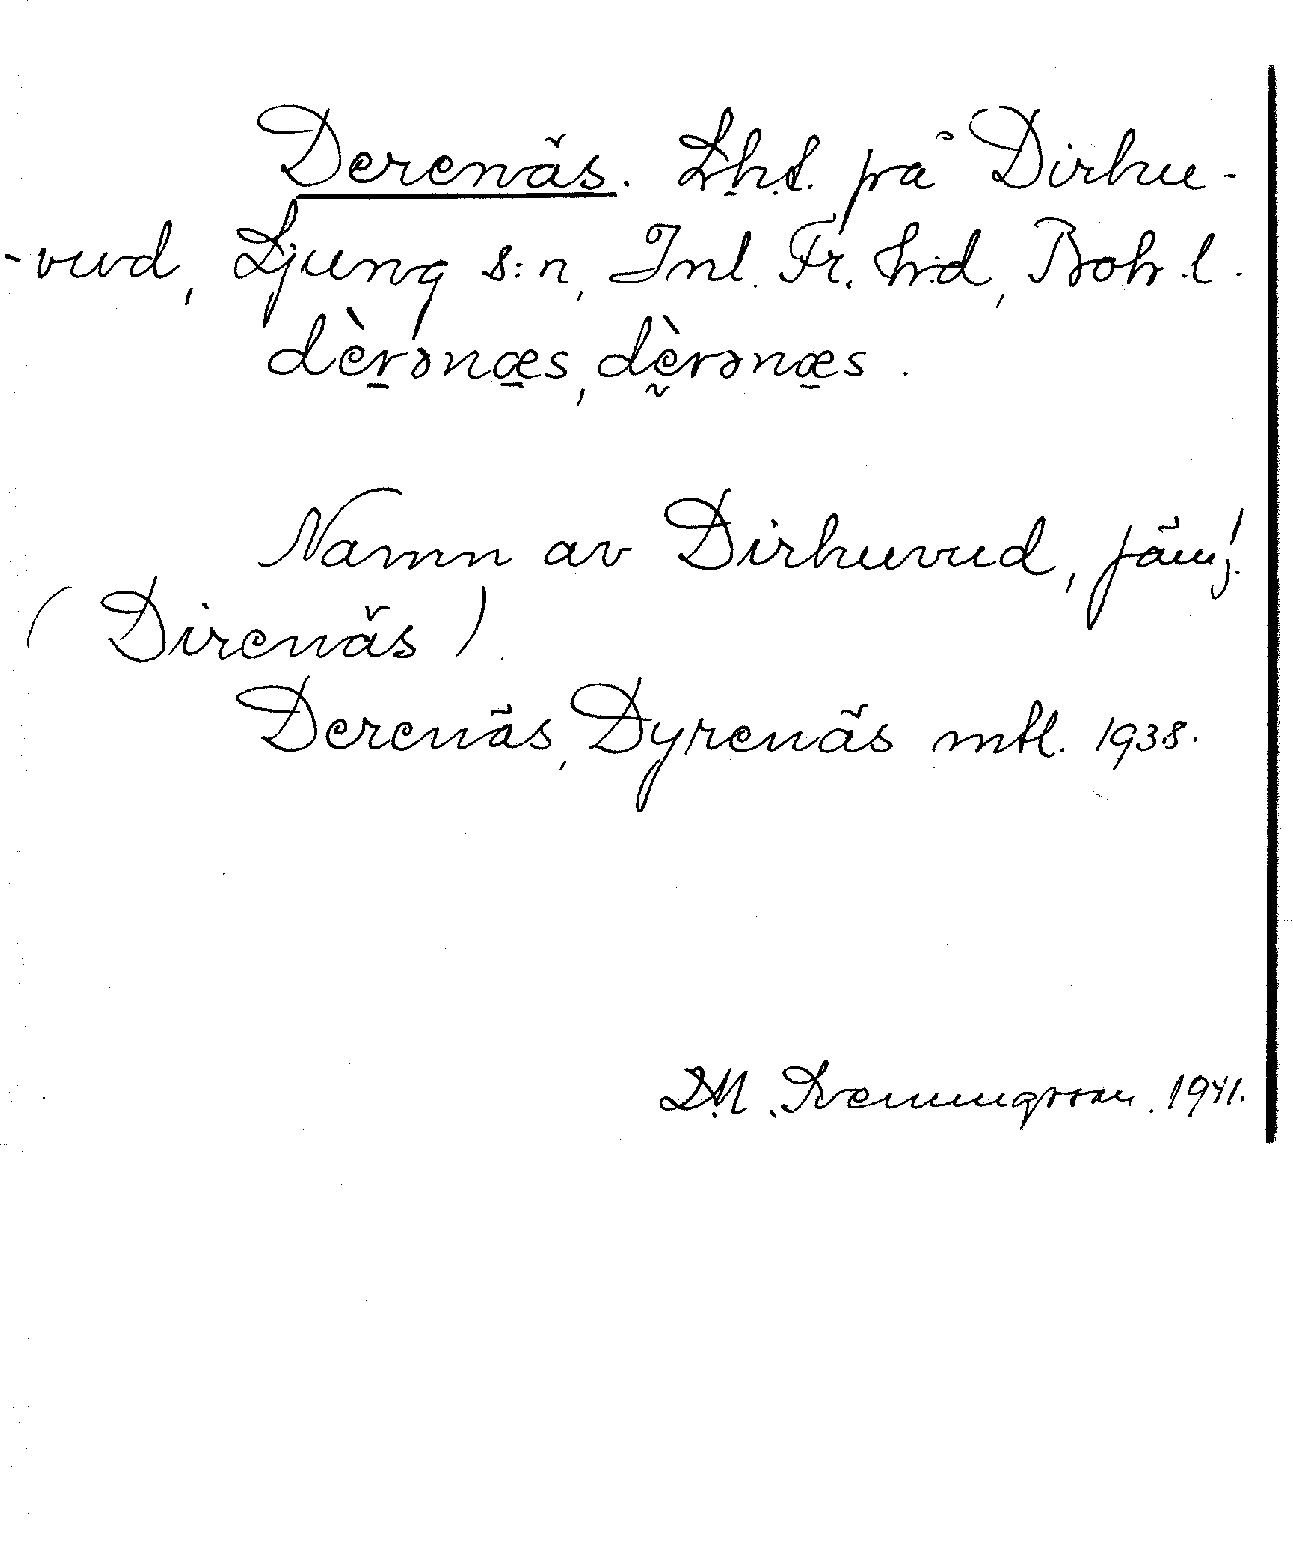 Derenäs. Lht. på Dirhu-
-vud, Ljung s:n, Inl. Fr. hd, Boh. l.
dèr̠ənæ̠s, dḛ̀rənæ̠s.
Namn av Dirhuvud, jäm!
(Direnäs)
Derenäs, Dyrenäs mtl. 1938.
D.M. 1941.